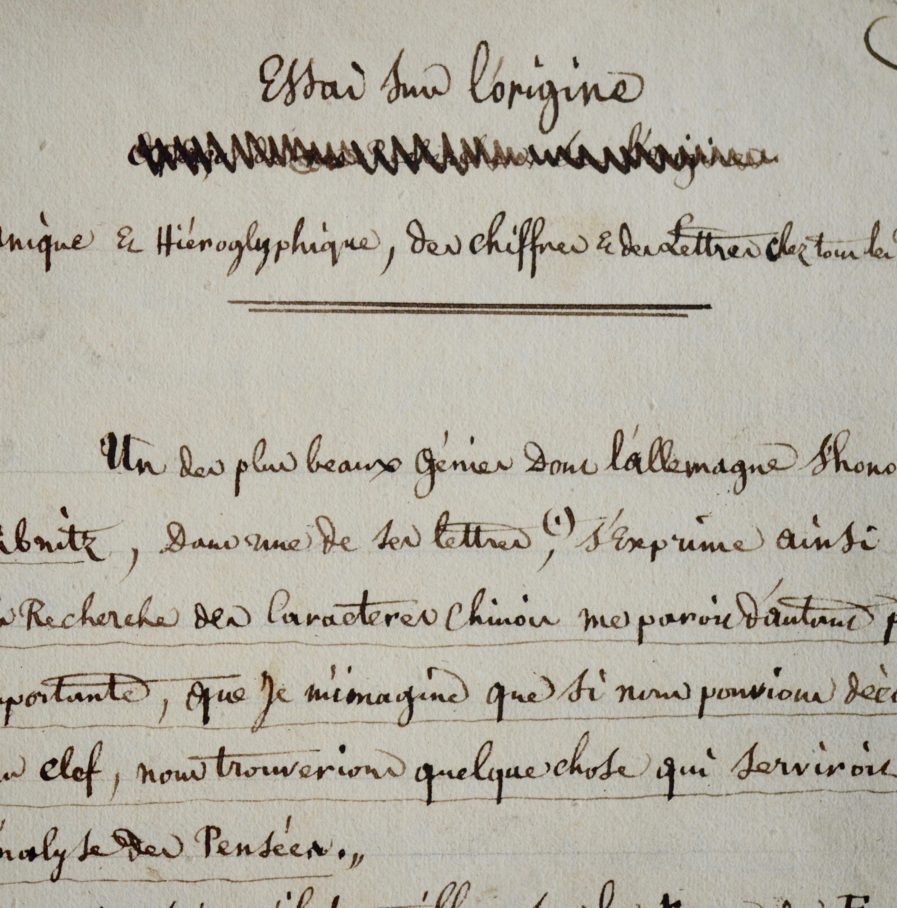 Essai sur l'origine
nique & Hiéroglyphique, des chiffres & des Lettres chez tous les
Un des plus beaux génies Dont l'allemagne s'hono
ibnitz, Dans une de ses lettres, (1) s'Exprime ainsi
Recherche des Caracteres Chinois me paroit d'autant p
portante, que Je m'imagine que si nous pouvions déco
clef, nous trouverions quelque chose qui serviroit
nalyse des Pensées.„